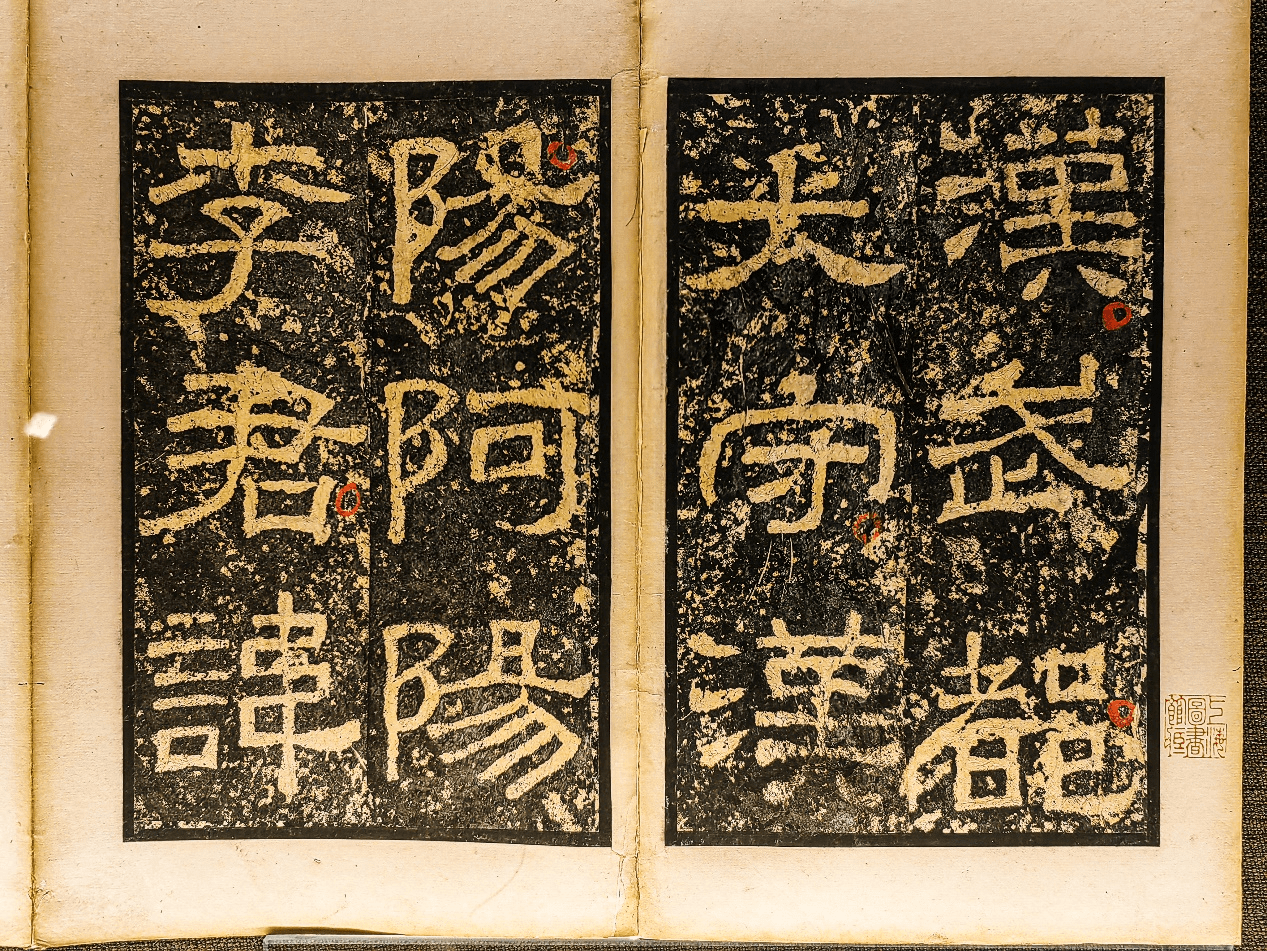 漢武都
太守漢
陽阿陽
李君諱
上海
圖書
館藏